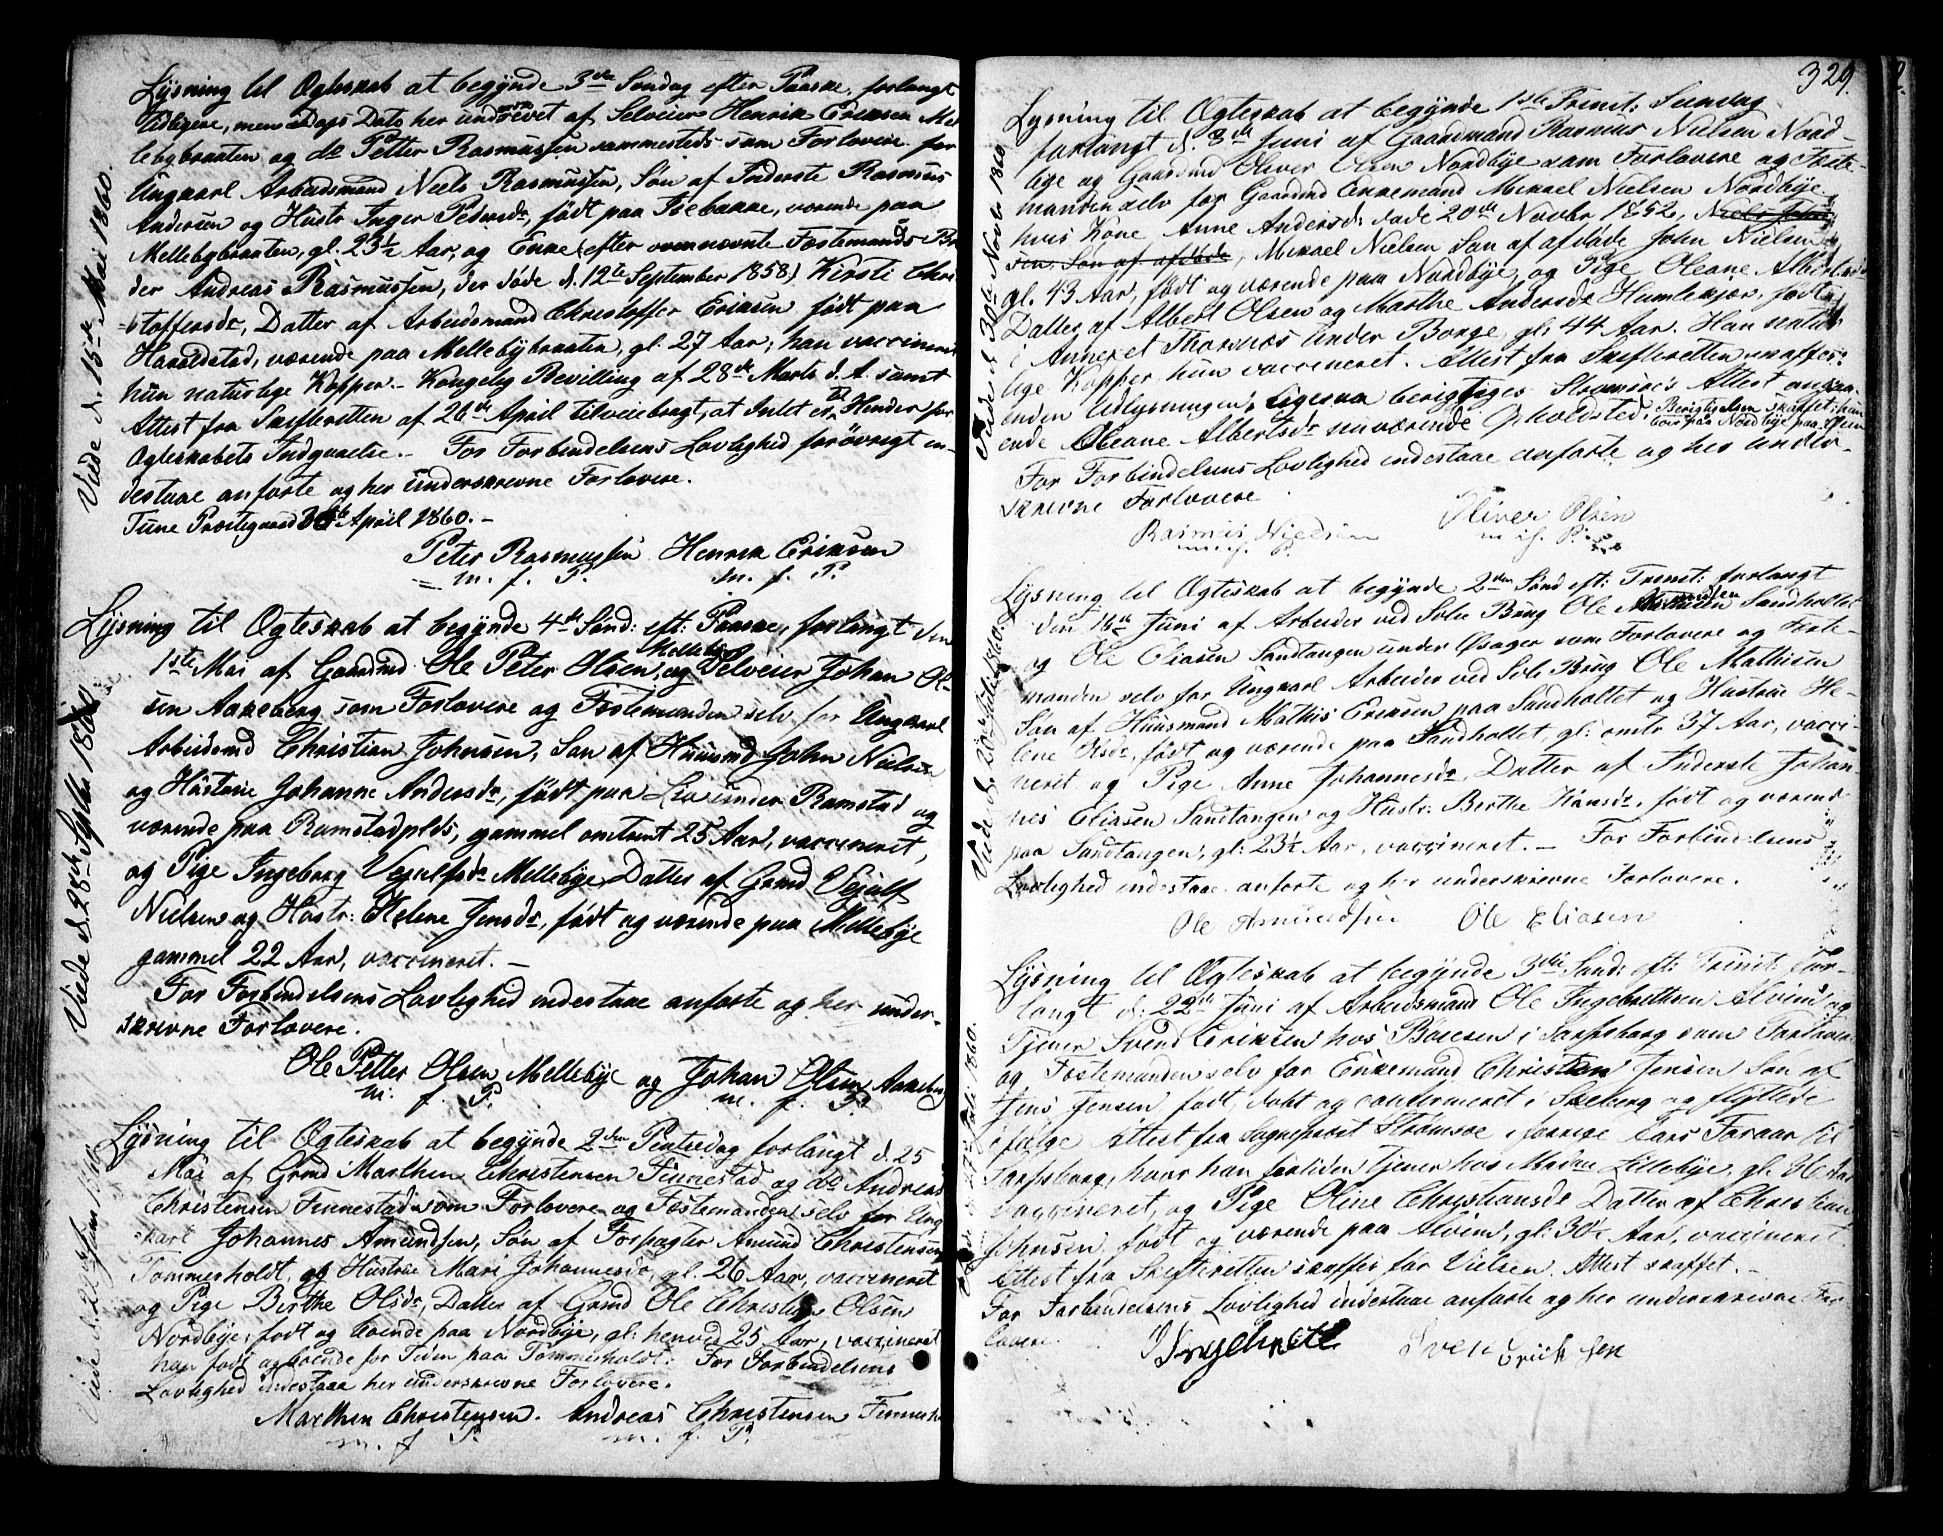 Lysning til Ægteskab at begynde 3die Søndag efter Paaske, forlangt
tidligere, men Dags Dato her underskrevet af Selveier Henrik Eriksen Mel-
lebybraaten og do Petter Rasmussen sammesteds som Forlovere for
Ungkarl Arbeidsmand Niels Rasmussen, Søn af Inderste Rasmus
Andersen og Hustr. Inger Pedersdr, født paa, værende paa
Mellebybraaten, gl. 23½ Aar, og Enke (efter ovennævnte Fæstemands Bro-
der Andreas Rasmussen, der døde d. 12te September 1858) Kirsti Chri-
stoffersdr, Datter af Arbeidsmand Christoffer Eriksen født paa
Haraldstad, værende paa Mellebybraaten, gl. 27 Aar, han vaccineret
hun naturlige Kopper. – Kongelig Bevilling af 28de Marts d. A. samt
Attest fra Skifteretten af 26de April tilveiebragt, at Intet er til Hinder for
Ægteskabets Indgaaelse. – For Forbindelsens Lovlighed forøvrigt in-
destaae anførte og her underskrevne Forlovere.
Tune Præstegaard 30te April 1860. –
Peter Rasmussen Henrik Eriksen
m. f. P. m. f. P.
Viede d. 15de Mai 1860.
Lysning til Ægteskab at begynde 4de Sønd: eft: Paaske, forlangt den
1ste Mai af Gaardmd Ole Peter Olsen Mellebye, og Selveier Johan Ol-
sen Aakeberg som Forlovere og Fæstemanden selv for Ungkarl
Arbeidsmd Christian Johnsen, Søn af Huusmd John Nielsen
og Hustrue Johanne Andersdr, født paa Lie under Ramstad og
værende paa Ramstadplds, gammel omtrent 25 Aar, vaccineret,
og Pige Ingeborg Vejulfsdr Mellebye, Datter af Grmd Vejulf
Nielsen og Hustr: Helene Jensdr, født og værende paa Mellebye
gammel 22 Aar, vaccineret. –
For Forbindelsens Lovlighed indestaae anførte og her under-
skrevne Forlovere.
Ole Petter Olsen Mellebye og Johan Olsen Aakeberg
m. f. P. m. f. P.
Viede d. 28de Septbr 1860.
Lysning til Ægteskab at begynde 2den Pintsedag forlangt d. 25
Mai af Grmd Marthin Christensen Finnestad og do Andreas
Christensen Finnestad som Forlovere og Fæstemanden selv for Ung-
karl Johannes Amundsen, Søn af Forpagter Amund Christensen
Tommerholdt, og Hustrue Mari Johannesdr, gl. 26 Aar, vaccineret
og Pige Birthe Olsdr, Datter af Grmd Ole Christian Olsen
Nordbye, født og boende paa Nordbye, gl: henved 25 Aar, vaccineret
han født og boende for Tiden paa Tommerholdt. For Forbindelsens
Lovlighed indestaae her underskrevne Forlovere.
Marthin Christensen. Andreas Christensen Finnestad
m. f. P. m. f. P.
Viede d. 22de Juni 1860.
329.
Lysning til Ægteskab at begynde 1ste Trinit: Søndag
forlangt d. 3die Juni af Gaardmand Rasmus Nielsen Nord-
bye og Gaardmd Oliver Olsen Nordbye som Forlovere og Fæste-
manden selv for Gaardmd Enkemand Mikael Nielsen Nordbye,
hvis Kone Anne Andersdr døde 20de Novbr 1852, Niels John-
sen, Søn af afdøde, Mikael Nielsen Søn af afdøde John Nielsen
gl. 43 Aar, født og værende paa Nordbye, og Pige Oleane Albertsdr
Datter af Albert Olsen og Marthe Andersdr Humlekjær, født
i Annexet Thorsnæs under Borge, gl: 44 Aar. Han natur-
lige Kopper, hun vaccineret. Attest fra Skifteretten skaffes
inden Udlysningen, ligesaa berigtiges Attest angaa-
ende Oleane Albertsdr nuværende Opholdsted. Berigtigelsen skaffet: hun
boer paa Nordbye paa
For Forbindelsens Lovlighed indestaae anførte og her under-
skrevne Forlovere
Rasmus Nielsen Oliver Olsen
m. f. P. m. f. P.
Viede d. 30te Novbr 1860.
Lysning til Ægteskab at begynde 2den Sønd eft: Trinit: forlangt
den 16de Juni af Arbeider ved Solie Brug Ole Amundsen Sandholtet
og Ole Eliasen Sandtangen under som Forlovere og Fæste-
manden selv for Ungkarl Arbeider ved Solie Brug Ole Mathisen
Søn af Huusmand Mathis Eriksen paa Sandholtet og Hustrue He-
lene Olsdr, født og værende paa Sandholtet, gl: omtr 37 Aar, vacci-
neret og Pige Anne Johannesdr, Datter af Inderste Johan-
nes Eliasen Sandtangen og Hustr: Berthe Hansdr, født og værende
paa Sandtangen, gl: 23½ Aar, vaccineret. – For Forbindelsens
Lovlighed indestaae anførte og her underskrevne Forlovere.
Ole Amundsen Ole Eliasen
Viede d. 20de Juli 1860.
Lysning til Ægteskab at begynde 3die Sønd: eft: Trinit: for-
langt d: 22de Juni af Arbeidsmand Ole Ingebrethsen Alvim og
Tjener Svend Eriksen hos Børesen i Sarpsborg som Forlovere
og Fæstemanden selv for Enkemand Christian Jensen Søn af
Jens Jensen født, døbt og confirmeret i Skeberg og flyttede
ifølge Attest fra Sognepræst Strømsøe i forrige Aars Foraar til
Sarpsborg, hvor han fortiden tjener hos Madme Lillebye, gl. Aar
vaccineret, og Pige Oline Christiansdr Datter af Christian
Johnsen født og værende paa Alvim, gl: 30½ Aar, vaccineret.
Attest fra Skifteretten skaffes før Vielsen. Attest skaffet. –
For Forbindelsens Lovlighed indestaae anførte og her underskrevne For-
lovere.
O Ingebretsen Sven Erichsen
Viede d. 27de Juli 1860.